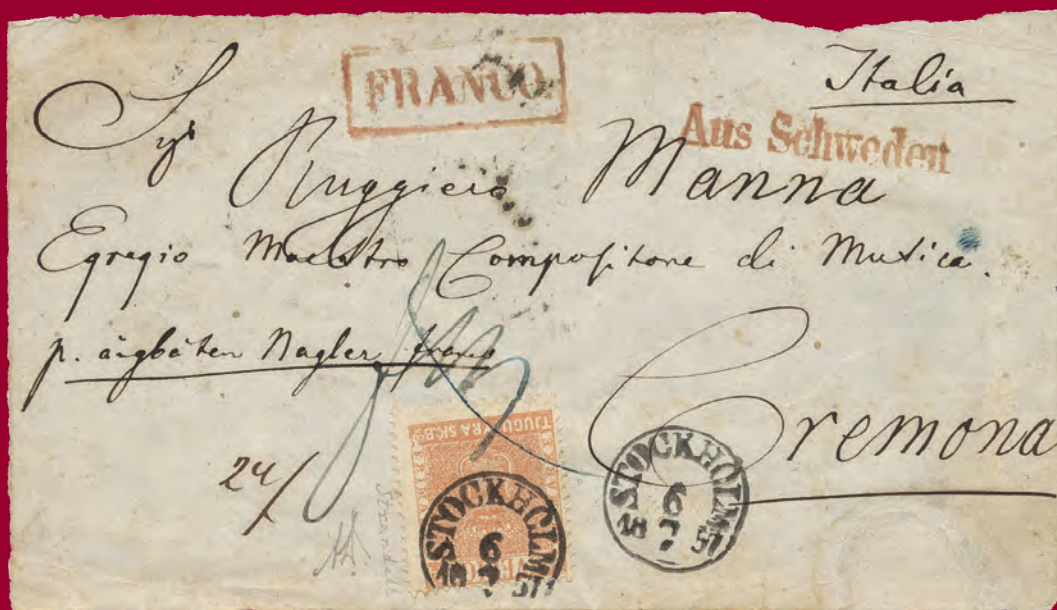 Italia
FRANCO.
Aus Schweden
Sigr Ruggiero Manna
Egregio Maestro Compositore di Musica.
p. ångbåten Nagler franco
Cremona
24/
TJUGUFYRA SK.Bco
STOCKHOLM
6
18 7 57
STOCKHOLM
6
18 7 57
Strandell